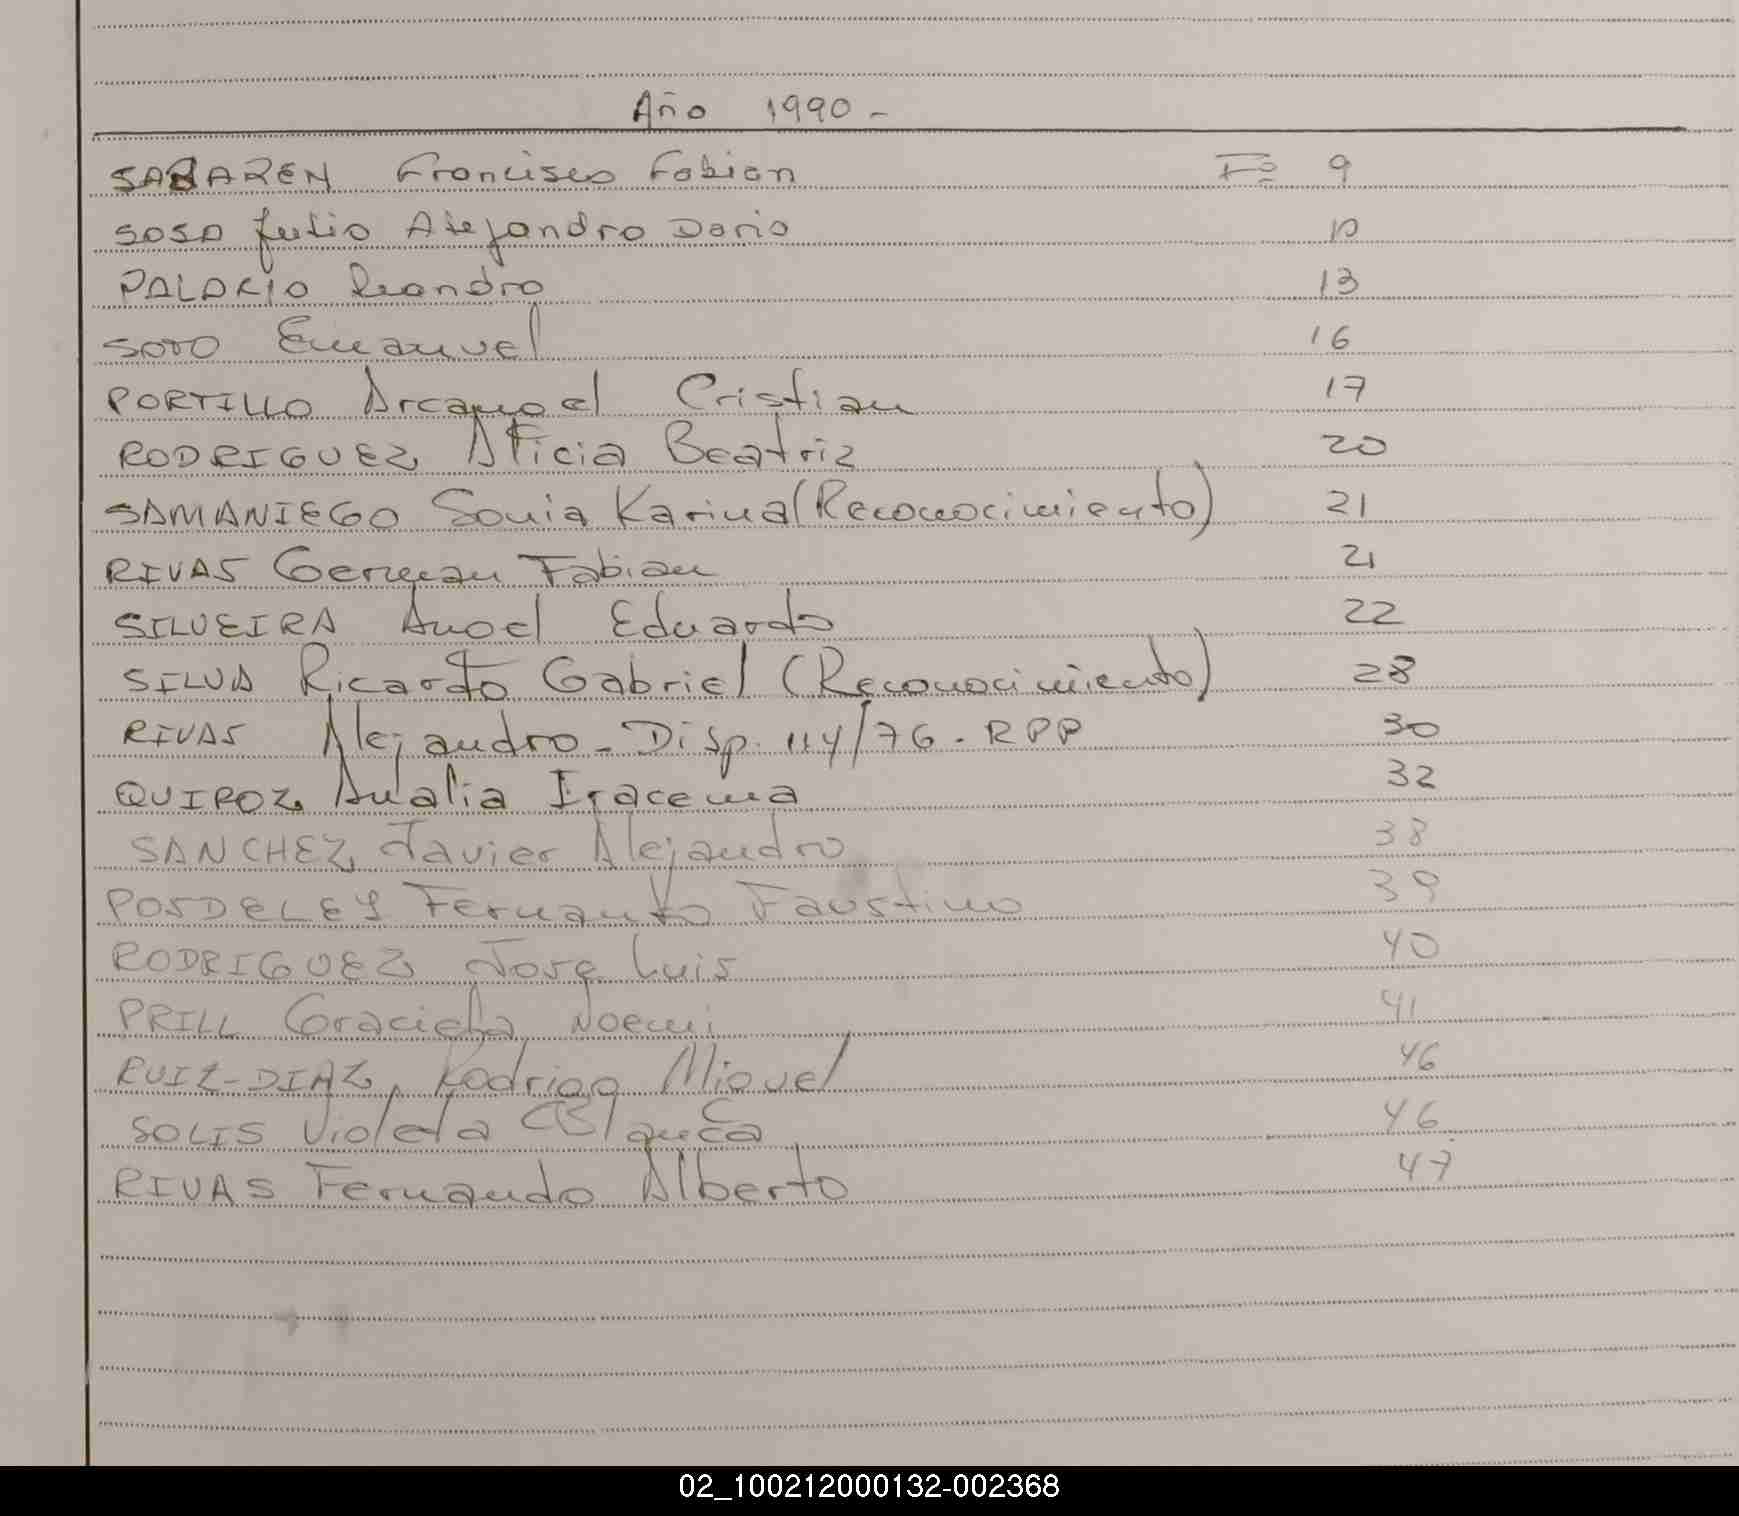 Año 1990-
SABAREN Francisco Fabian Fº 9
SOSA Julio Alejandro Dario 10
PALACIO Leandro 13
SOTO Emanuel 16
PORTILLO Arcangel Cristian 17
RODRIGUEZ Alicia Beatriz 20
SAMANIEGO Sonia Karina (Reconocimiento) 21
RIVAS German Fabian 21
SILVEIRA Angel Eduardo 22
SILVA Ricardo Gabriel (Reconocimiento) 28
RIVAS Alejandro - Disp. 114/76 - RPP 30
QUIROZ Analia Iracema 32
SANCHEZ Javier Alejandro 38
POSDELEY Fernando Faustino 39
RODRIGUEZ Jose Luis 40
PRILL Graciela Noemi 41
RUIZ-DIAZ, Rodrigo Miguel 46
SOLIS Violeta Blanca 46
RIVAS Fernando Alberto 47
02_100212000132-002368